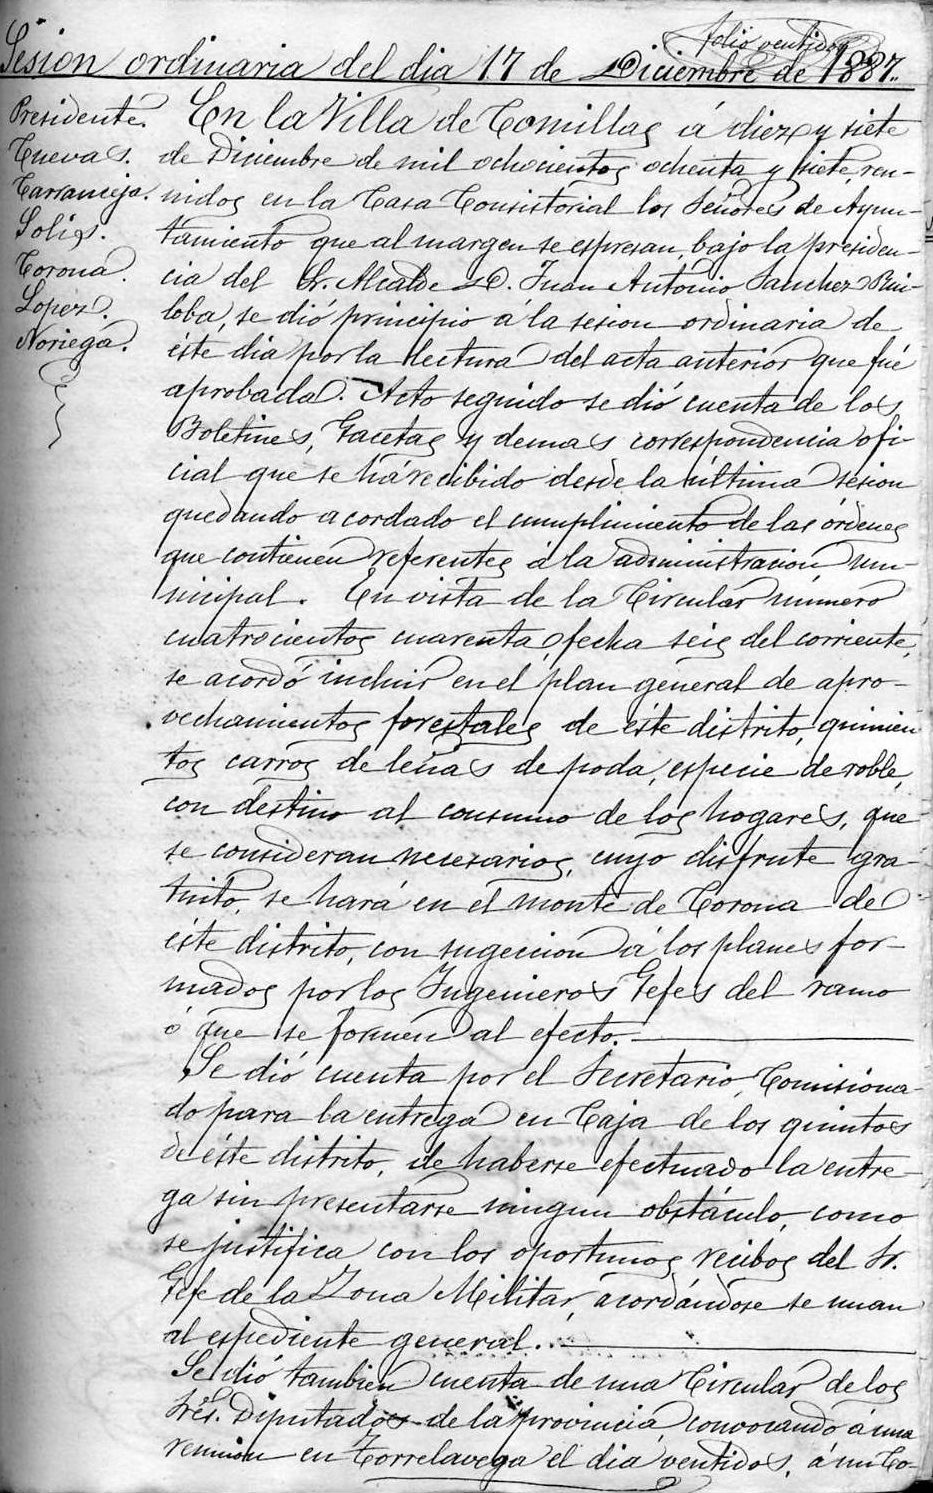 folio ventidos
Sesion ordinaria del dia 17 de Diciembre de 1887.
Presidente.
Cuevas.
Tarranceja.
Solis.
Corona.
Lopez.
Noriega.
En la Villa de Comillas á diez y siete
de Diciembre de mil ochocientos ochenta y siete, reu-
nidos en la Casa Consistorial los Señores de Ayun-
tamiento que al margen se espresan, bajo la presiden-
cia del Sr. Alcalde D. Juan Antonio Sanchez Rui-
loba, se dió principio á la sesion ordinaria de
éste dia por la lectura del acta anterior que fué
aprobada. Acto seguido se dió cuenta de los
Boletines, Gacetas y demas correspondencia ofi-
cial que se há recibido desde la última sesion
quedando acordado el cumplimiento de las órdenes
que contienen referentes á la administracion mu-
nicipal. En vista de la Circular número
cuatrocientos cuarenta, fecha seis del corriente,
se acordó incluir en el plan general de apro-
vechamientos forestales de éste distrito, quinien
tos carros de leñas de poda, especie de roble,
con destino al consumo de los hogares, que
se consideran necesarios, cuyo disfrute gra-
tuito, se hará en el monte de Corona de
éste distrito, con sugecion á los planes for-
mados por los Ingenieros Gefes del ramo
ó que se formen al efecto.
Se dió cuenta por el Secretario, Comisiona-
do para la entrega en Caja de los quintos
de éste distrito, de haberse efectuado la entre-
ga sin presentarse ningun obstáculo, como
se justifica con los oportunos recibos del Sr.
Gefe de la Zona Militar, acordándose se unan
al espediente general.
Se dió tambien cuenta de una Circular de los
Srés. Diputados de la provincia, convocando á una
reunion en Torrelavega el dia ventidos, á un Co-